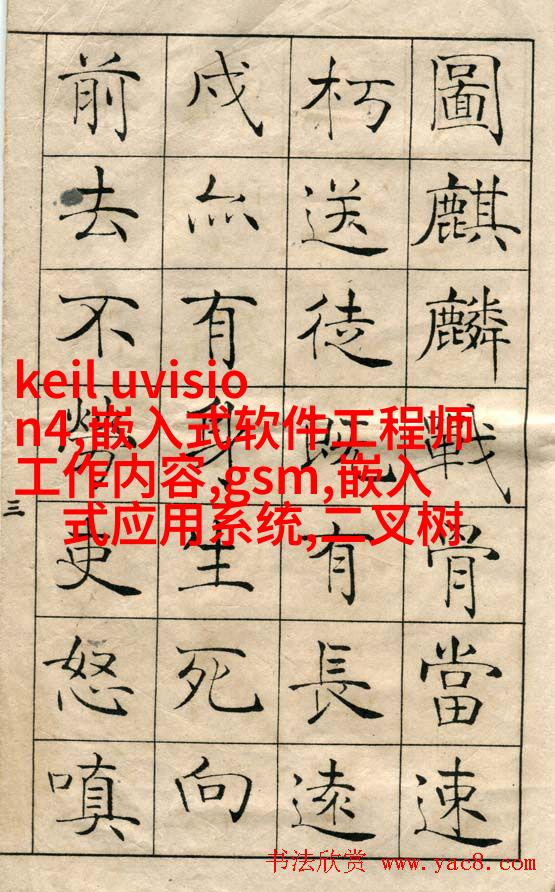 圖麒麟戰骨當速
朽送徒既有長遠
戍亦有身生死向
前去不勞吏怒嗔
三
keil uvisio
n4,嵌入式软件工程师
工作内容,gsm,嵌入
式应用系统,二叉树
书法欣赏 www.yac8.com